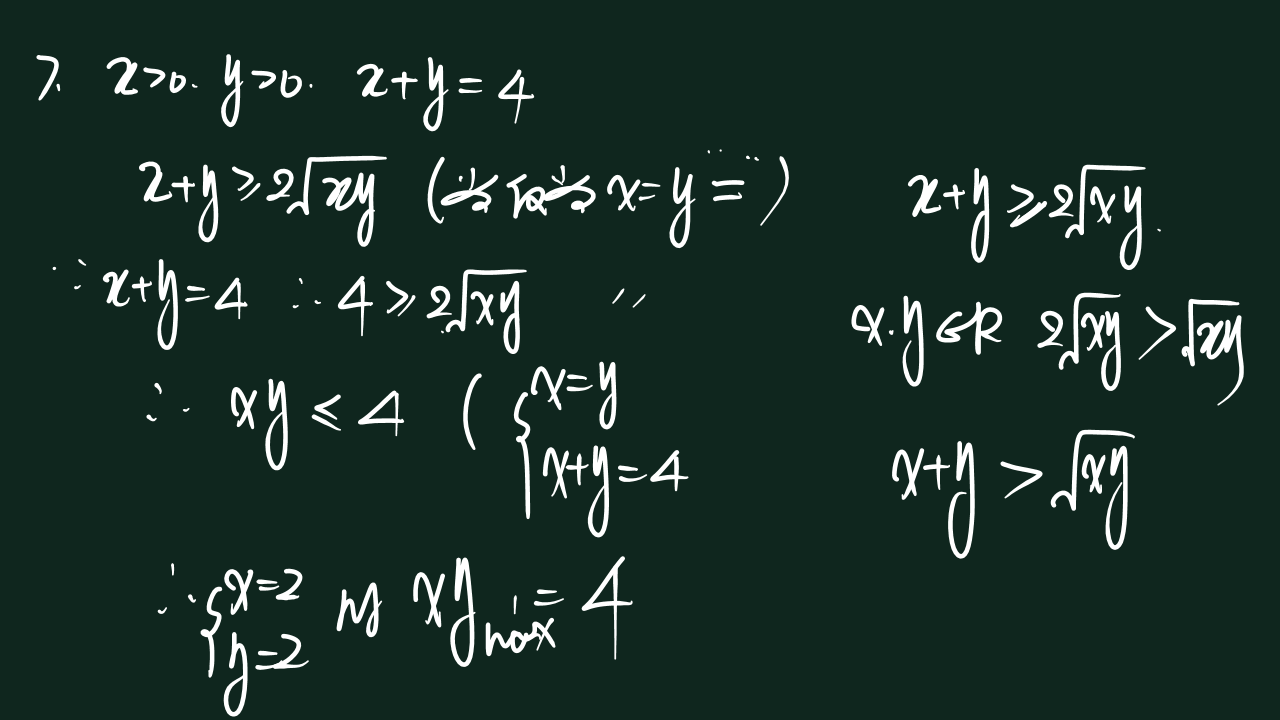 7. x>0. y>0. x+y=4
x+y≥2√xy (当且仅当 x=y = )
∵ x+y=4 ∴ 4≥2√xy
∴ xy≤4 ( { x=y
x+y=4
∴ { x=2
y=2 时 xy max = 4
x+y≥2√xy.
x.y∈R 2√xy>√xy
x+y>√xy